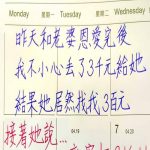 Monday 星期一 Tuesday 星期二 Wednesday
昨天和老婆恩愛完後
我不小心丟了3千元給她
結果她居然找我3百元
接著她說...
04.19
7 04.20